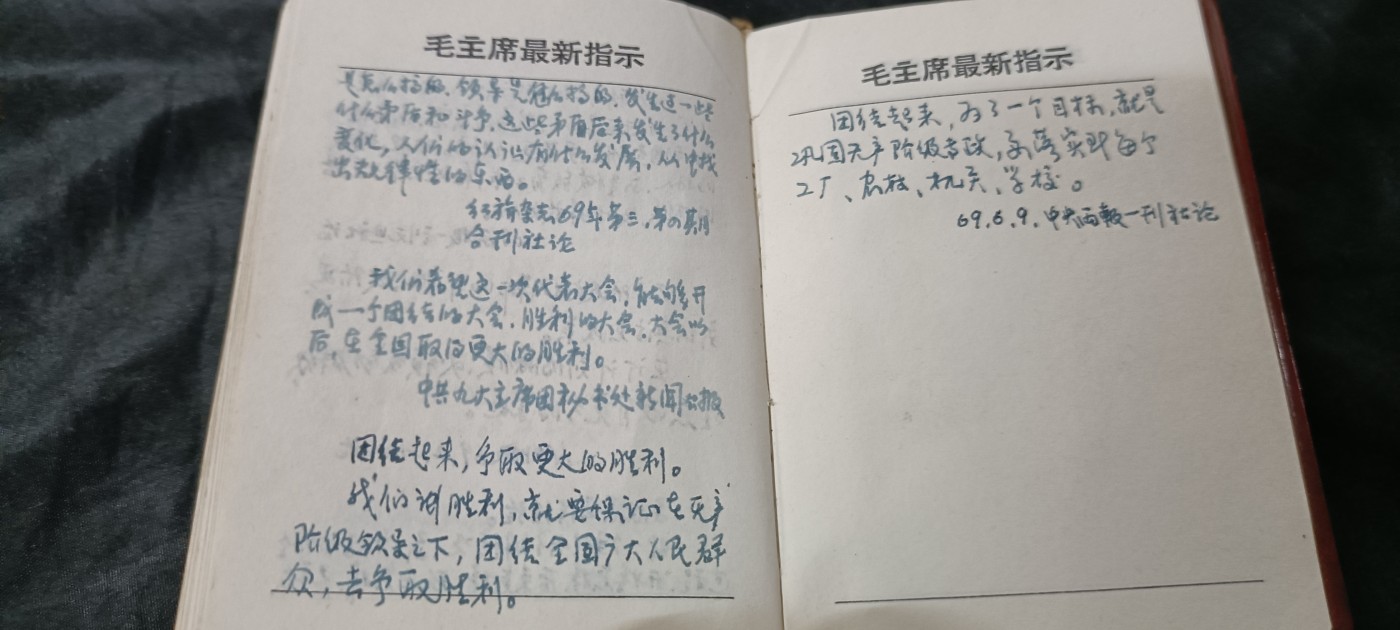 毛主席最新指示
是怎么搞的，领导是怎么搞的，发生过一些
什么矛盾和斗争，这些矛盾后来发生了什么
变化，人们的认识有什么发展，从中找
出规律性的东西。
红旗杂志69年第三、第四期
合刊社论
我们希望这一次代表大会，能够开
成一个团结的大会，胜利的大会，大会以
后在全国取得更大的胜利。
中共九大主席团秘书处新闻公报
团结起来，争取更大的胜利。
我们讲胜利，就要保证在无产
阶级领导之下，团结全国广大人民群
众，去争取胜利。
毛主席最新指示
团结起来，为了一个目标，就是
巩固无产阶级专政，要落实到每个
工厂、农村、机关、学校。
69.6.9.中央两报一刊社论